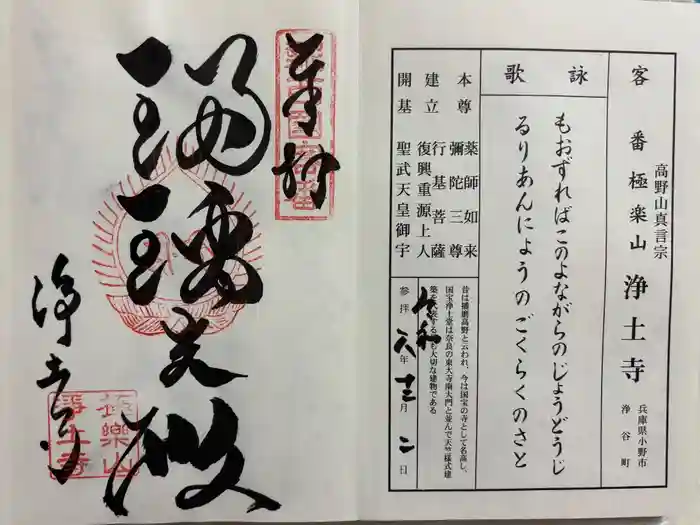 客番 極楽山 浄土寺
高野山真言宗
兵庫県小野市
浄谷町
詠歌
もおずればこのよながらのじょうどうじ
るりあんにょうのごくらくのさと
本尊 薬師如来
彌陀三尊
建立 行基菩薩
復興 重源上人
開基 聖武天皇御宇
昔は播磨高野と云われ、今は国宝の寺として名高し、
国宝浄土堂は奈良の東大寺南大門と並んで天竺様式建
築を代表する
も大切な建物である
参拝 令和六年十二月二日
奉拝
瑠璃光殿
浄土寺
極楽山
浄土寺